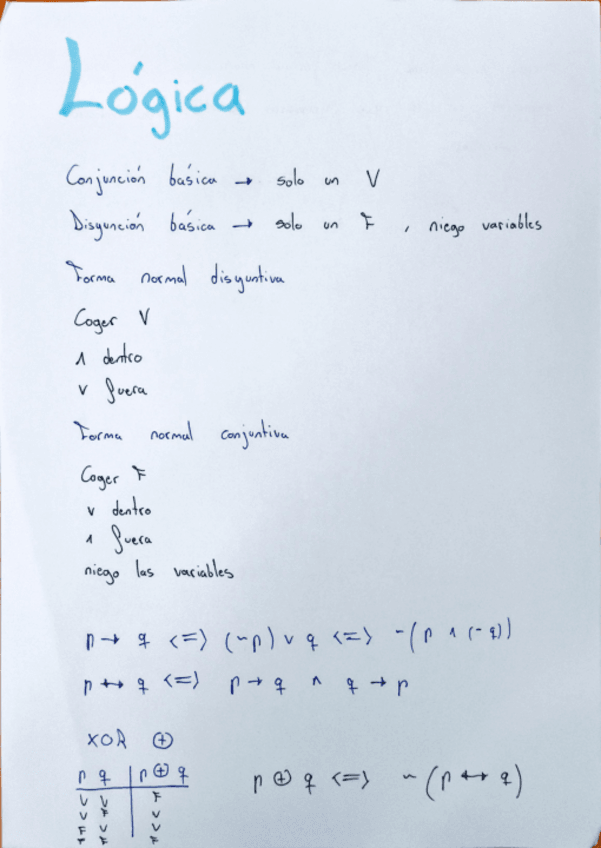 Lógica
Conjunción básica → solo un V
Disyunción básica → solo un F , niego variables
Forma normal disyuntiva
Coger V
∧ dentro
∨ fuera
Forma normal conjuntiva
Coger F
∨ dentro
∧ fuera
niego las variables
p → q <=> (~p) ∨ q <=> ~(p ∧ (~q))
p ↔ q <=> p → q ∧ q → p
XOR ⊕
p q | p ⊕ q
V V F
V F V
F V V
F F F
p ⊕ q <=> ~(p ↔ q)